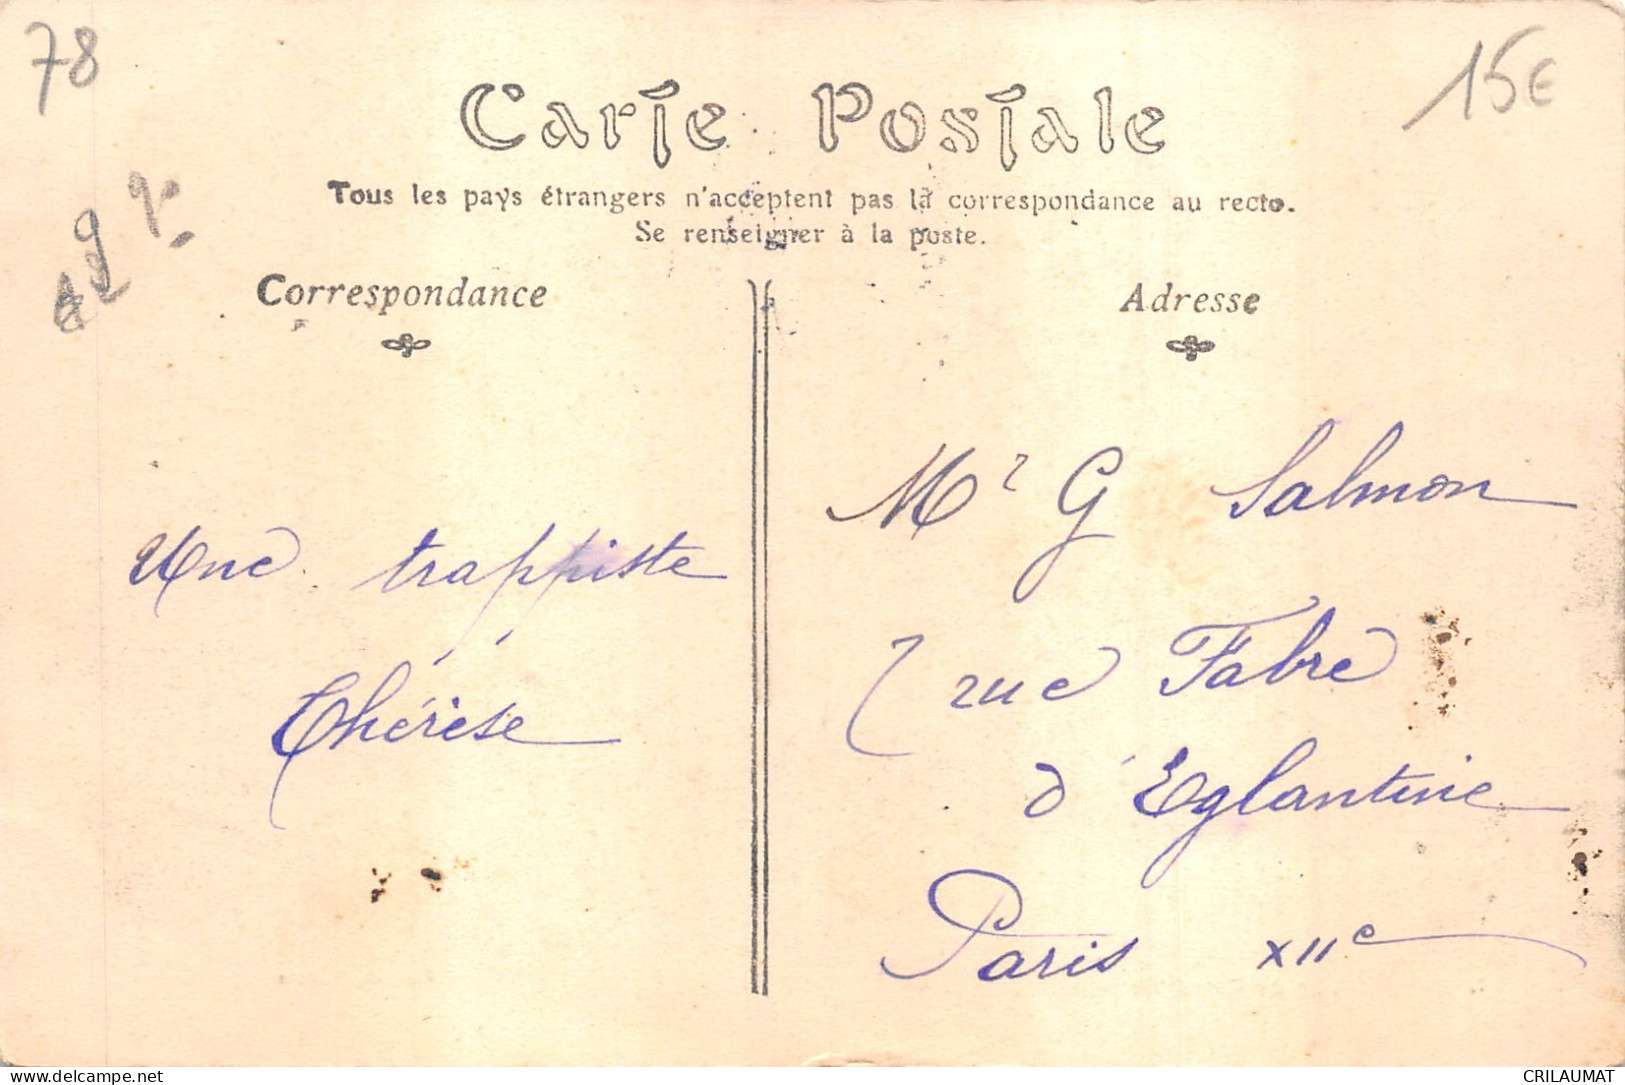 78
15€
Carte Postale
Tous les pays étrangers n'acceptent pas la correspondance au recto.
Se renseigner à la poste.
Correspondance
Adresse
Une trappiste
Thérèse
Mr G Salmon
7 rue Fabre
d'Eglantine
Paris XIIe
delcampe.net
CRILAUMAT